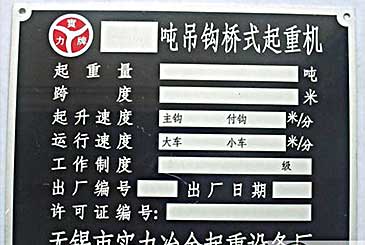 實力牌
吨吊钩桥式起重机
起重量 吨
跨度 米
起升速度 主钩 付钩 米/分
运行速度 大车 小车 米/分
工作制度 级
出厂编号 出厂日期
许可证编号:
无锡市实力冶金起重设备厂